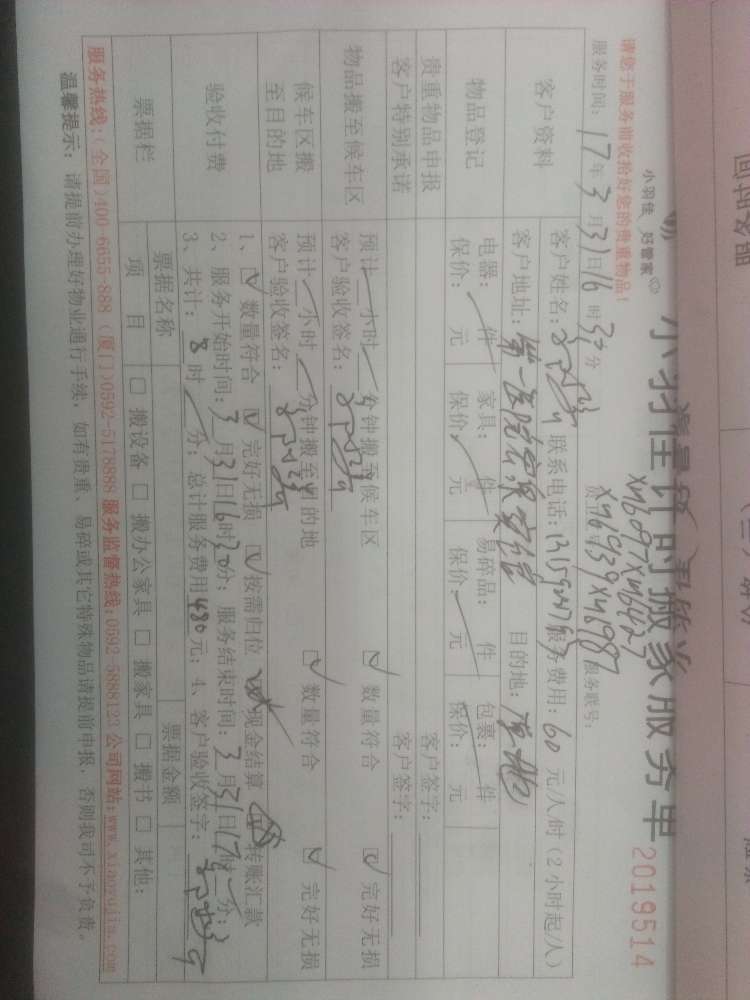 小羽佳 好管家
小羽佳 计时搬家服务单
2019514
请您于服务前收拾好您的贵重物品!
XM6097 XM6427
XM6939 XM6987
服务时间: 17年3月31日16时30分
服务联号:
客户资料
客户姓名: 联系电话: 服务费用: 60元/人时(2小时起/人)
客户地址: 第一医院 目的地:
物品登记
电器: 件 家具: 件 易碎品: 件 包裹: 件
保价: 元 保价: 元 保价: 元 保价: 元
贵重物品申报 客户签字:
客户特别承诺 客户签字:
物品搬至候车区
预计 小时 分钟搬至候车区 ☑ 数量符合 ☑ 完好无损
客户验收签名:
候车区搬至目的地
预计 小时 分钟搬至目的地 ☑ 数量符合 ☑ 完好无损
客户验收签名:
验收付费
1、☑ 数量符合 ☑ 完好无损 ☑ 按需归位 现金结算 转账汇款
2、服务开始时间: 3月31日16时30分; 服务结束时间: 3月31日17时 分;
3、共计: 8时 分; 总计服务费用480元; 4、客户验收签字:
票据栏
票据名称 票据金额
项目 □ 搬设备 □ 搬办公家具 □ 搬家具 □ 搬书 □ 其他:
服务热线:(全国)400-6655-888 (厦门)0592-5178888 服务监督热线:0592-5888123 公司网站:www.xiaoyujia.com
温馨提示: 请提前办理好物业通行手续, 如有贵重、易碎或其它特殊物品请提前申报, 否则我司不予负责。